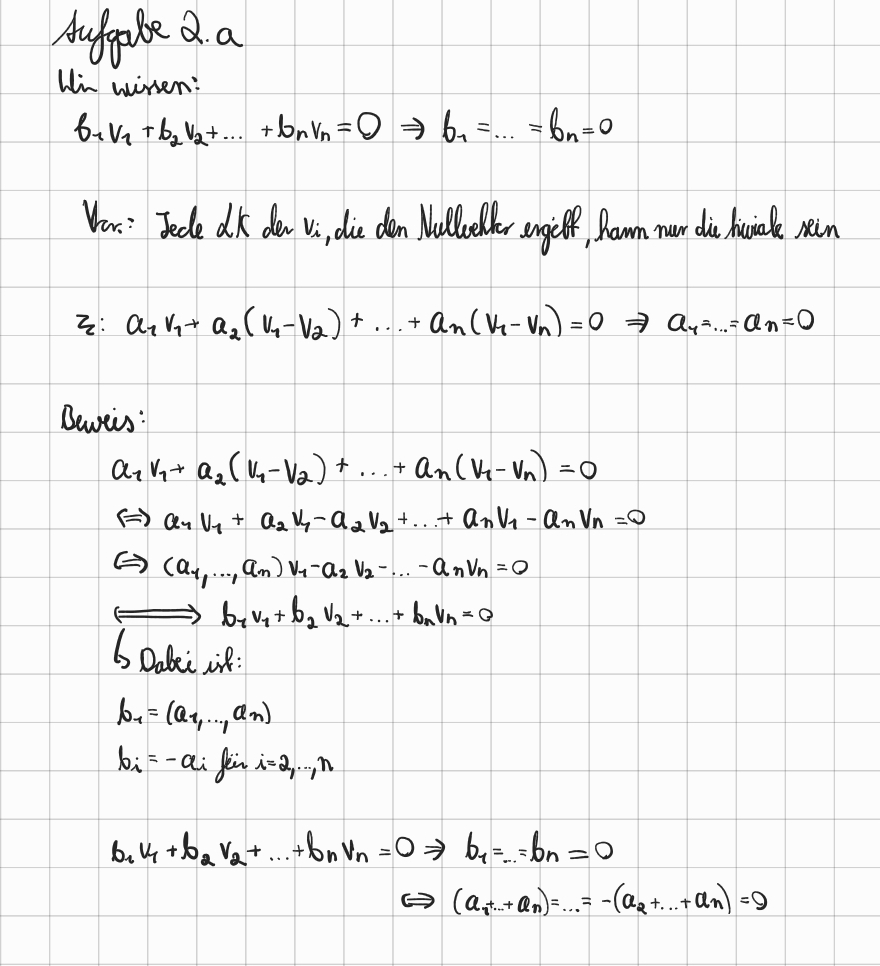 Aufgabe 2.a
Wir wissen:
b₁v₁ + b₂v₂ + ... + bₙvₙ = 0 ⇒ b₁ = ... = bₙ = 0
Vor.: Jede LK der vᵢ, die den Nullvektor ergibt, kann nur die triviale sein
Z: a₁v₁ + a₂(v₁ - v₂) + ... + aₙ(v₁ - vₙ) = 0 ⇒ a₁ = ... = aₙ = 0
Beweis:
a₁v₁ + a₂(v₁ - v₂) + ... + aₙ(v₁ - vₙ) = 0
⇔ a₁v₁ + a₂v₁ - a₂v₂ + ... + aₙv₁ - aₙvₙ = 0
⇔ (a₁, ..., aₙ)v₁ - a₂v₂ - ... - aₙvₙ = 0
⇔ b₁v₁ + b₂v₂ + ... + bₙvₙ = 0
↳ Dabei ist:
b₁ = (a₁, ..., aₙ)
bᵢ = -aᵢ für i = 2, ..., n
b₁v₁ + b₂v₂ + ... + bₙvₙ = 0 ⇒ b₁ = ... = bₙ = 0
⇔ (a₁ + ... + aₙ) = ... = -(a₂ + ... + aₙ) = 0